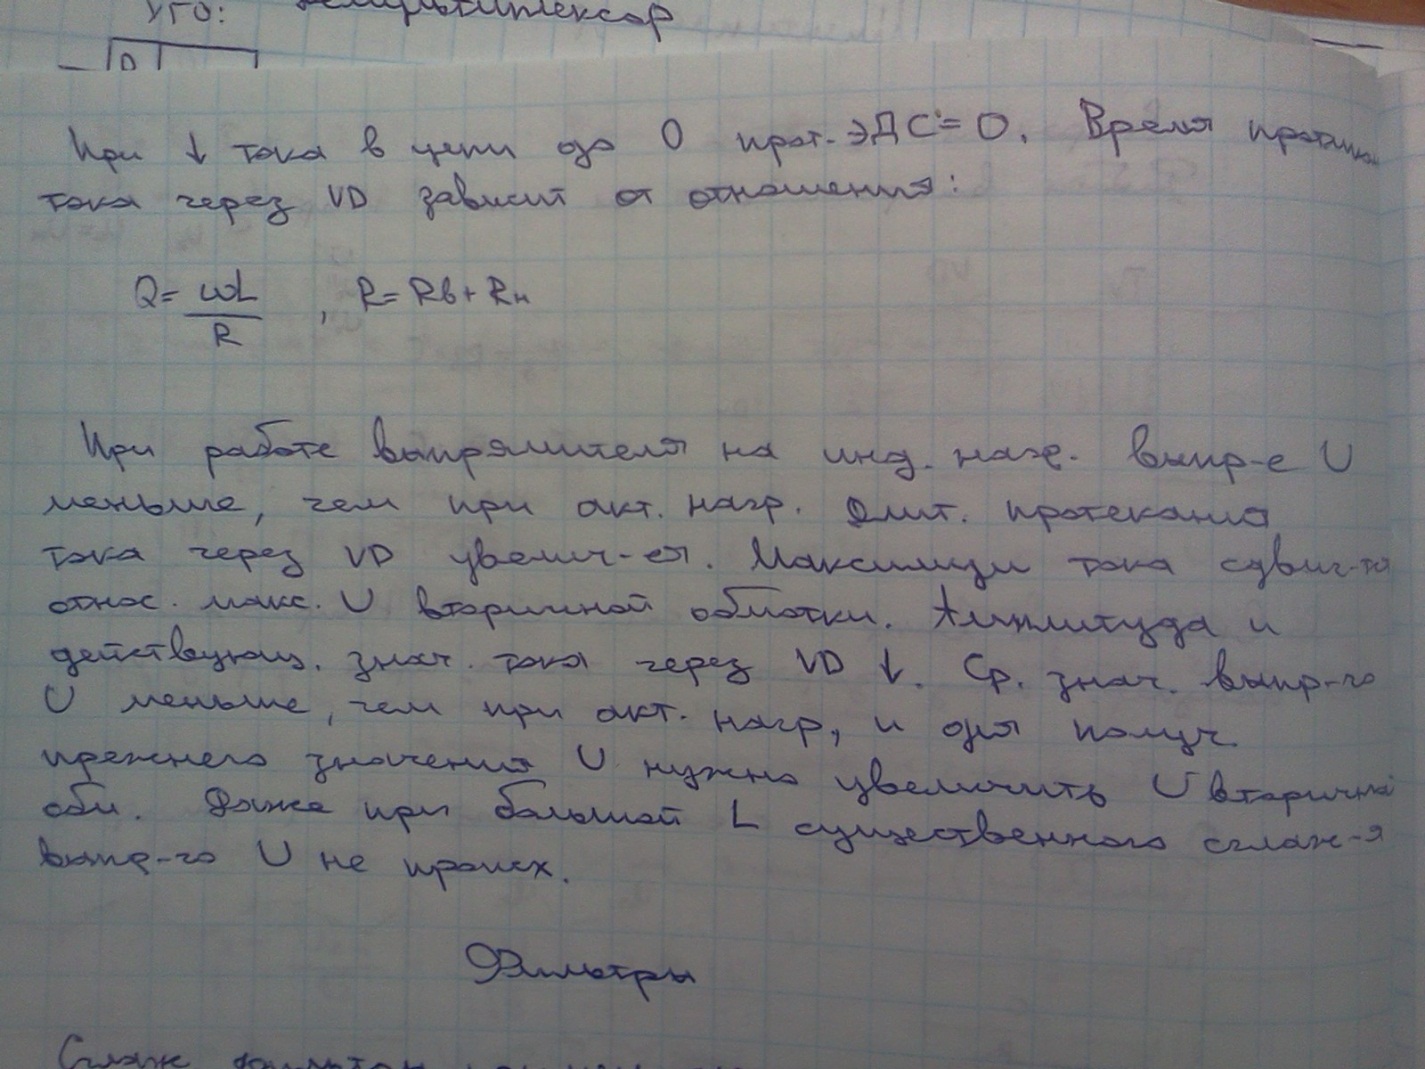 УГО: Демультиплексор
D
При ↓ тока в цепи до 0 прот. ЭДС = 0. Время протекан
тока через VD зависит от отношения:
Q = ωL / R , R = Rв + Rн
При работе выпрямителя на инд. нагр. выпр-е U
меньше, чем при акт. нагр. Длит. протекания
тока через VD увелич-ся. Максимум тока сдвиг-ся
относ. макс. U вторичной обмотки. Амплитуда и
действующ. знач. тока через VD ↓. Ср. знач. выпр-го
U меньше, чем при акт. нагр, и для получ.
прежнего значения U нужно увеличить U вторичной
обм. Даже при большой L существенного сглаж-я
выпр-го U не происх.
Фильтры
Сглаж